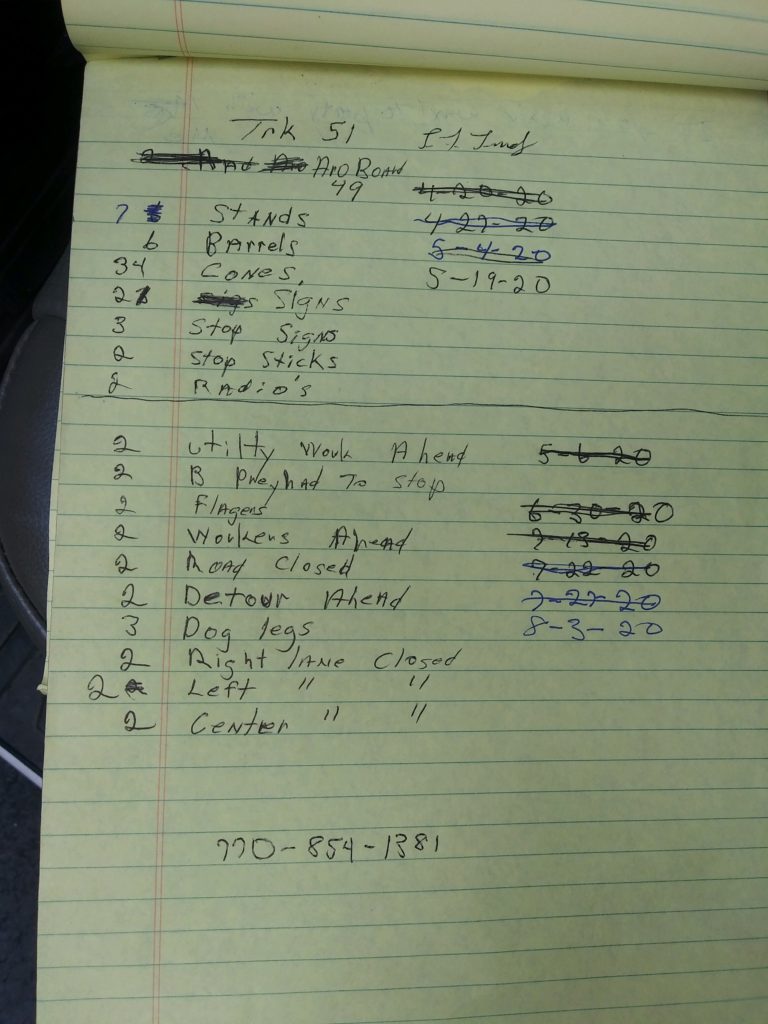 Trk 51
Aro Board
49 4-20-20
7 Stands 4-27-20
6 Barrels 5-4-20
34 Cones, 5-19-20
2 Signs
3 Stop Signs
2 Stop Sticks
2 Radio's
2 utilty Work Ahead 5-6-20
2 B Preyhad To stop
2 Flagers 6-30-20
2 Workers Ahead 7-13-20
2 Road Closed 7-22-20
2 Detour Ahead 7-27-20
3 Dog legs 8-3-20
2 Right lane Closed
2 Left " "
2 Center " "
770-854-1381